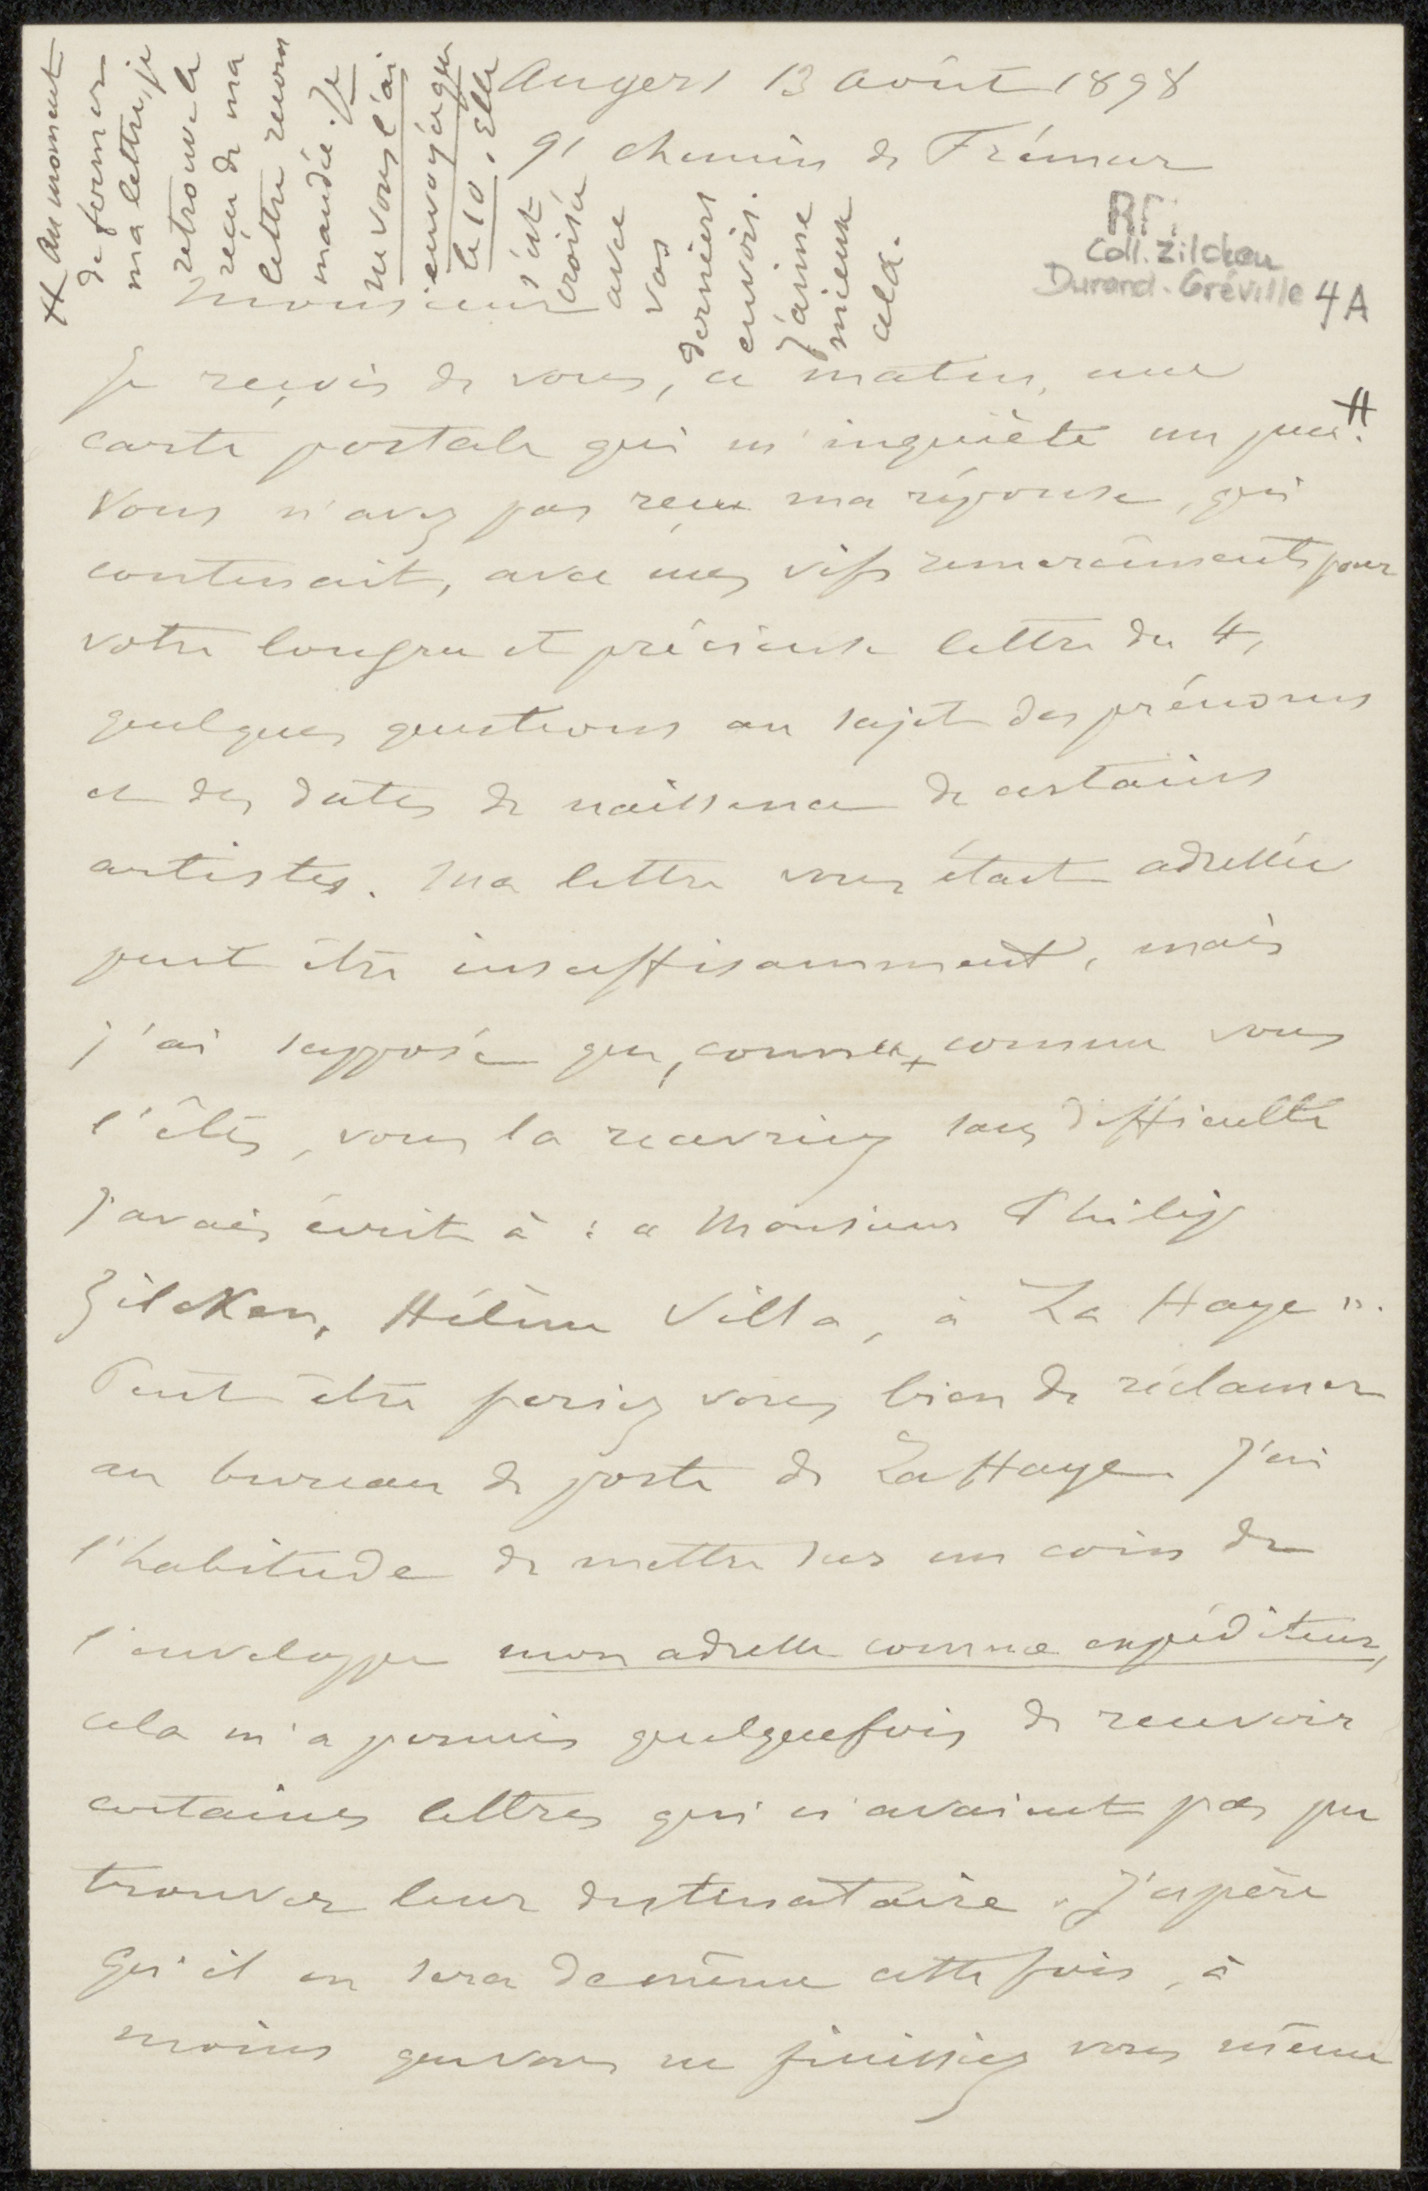 Angers 13 août 1898
91 chemin de Frémur
RF:
Coll. Zilcken
Durand-Gréville 4A
Monsieur
Je reçois de vous, ce matin, une
carte postale qui m'inquiète un peu #.
Vous n'avez pas reçu ma réponse, qui
contenait, avec mes vifs remerciments pour
votre longue et précieuse lettre du 4,
quelques questions au sujet des prénoms
et des dates de naissance de certains
artistes. Ma lettre vous était adressée
peut être insuffisamment, mais
j'ai supposé que, connu, comme vous
l'êtes, vous la recevriez sans difficulté
J'avais écrit à : « Monsieur Philip
Zilcken, Hélène Villa, à La Haye ».
Peut être feriez vous bien de réclamer
au bureau de poste de La Haye. J'ai
l'habitude de mettre sur un coin de
l'enveloppe mon adresse comme expéditeur,
cela m'a permis quelquefois de recevoir
certaines lettres qui n'avaient pas pu
trouver leur destinataire. J'espère
qu'il en sera de même cette fois, à
moins que vous ne finissiez vous même
# Au moment
de fermer
ma lettre, je
retrouve le
reçu de ma
lettre recom
mandée. Je
ne vous l'ai
envoyée que
le 10. Elle
s'est
croisée
avec
vos
derniers
envois.
J'aime
mieux
cela.